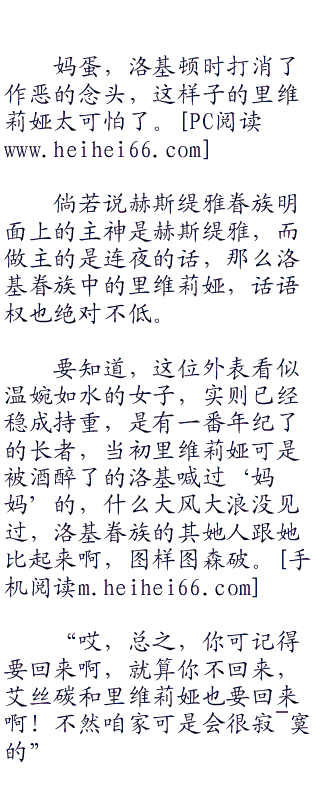 妈蛋，洛基顿时打消了
作恶的念头，这样子的里维
莉娅太可怕了。[PC阅读
www.heihei66.com]
倘若说赫斯缇雅眷族明
面上的主神是赫斯缇雅，而
做主的是连夜的话，那么洛
基眷族中的里维莉娅，话语
权也绝对不低。
要知道，这位外表看似
温婉如水的女子，实则已经
稳成持重，是有一番年纪了
的长者，当初里维莉娅可是
被酒醉了的洛基喊过‘妈
妈’的，什么大风大浪没见
过，洛基眷族的其她人跟她
比起来啊，图样图森破。[手
机阅读m.heihei66.com]
“哎，总之，你可记得
要回来啊，就算你不回来，
艾丝碳和里维莉娅也要回来
啊！不然咱家可是会很寂¯寞
的”